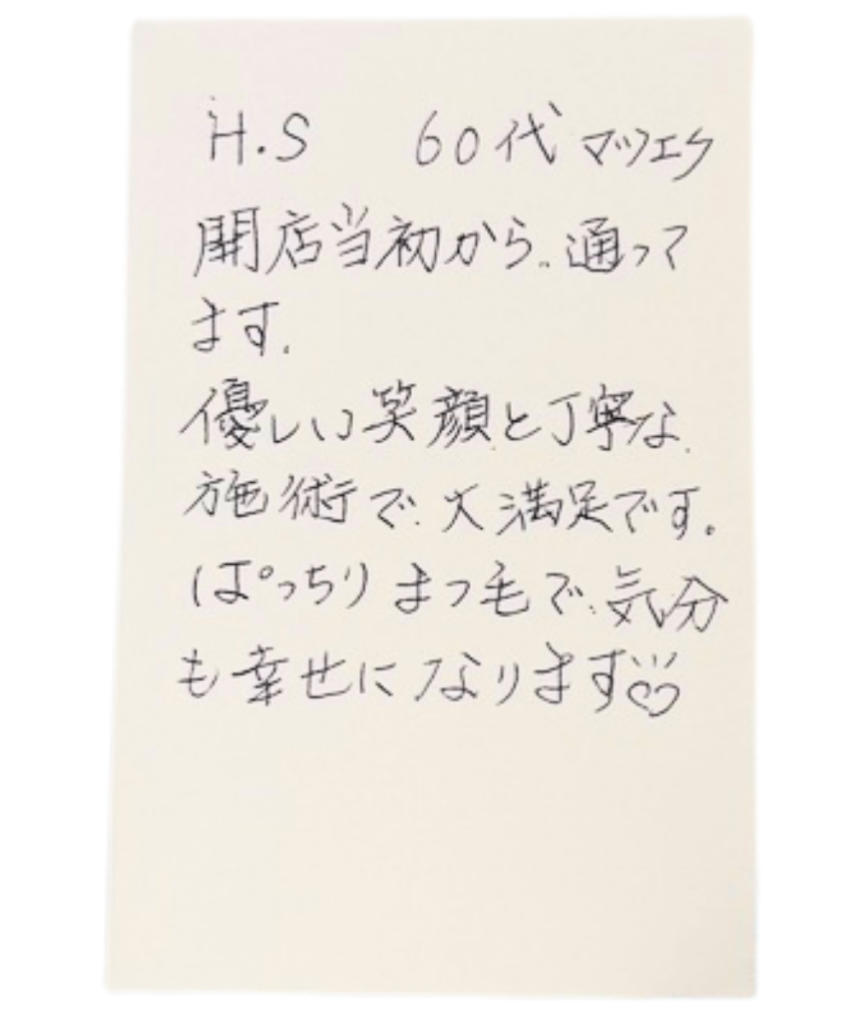 H.S 60代 マツエク
開店当初から、通って
ます。
優しい笑顔と丁寧な
施術で、大満足です。
ぱっちりまつ毛で、気分
も幸せになります♡